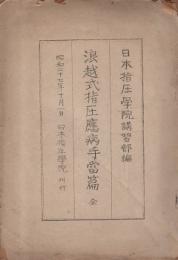 日本指圧學院講習部編
浪越式指圧應病手當篇 全
昭和二十七年十月一日 日本指圧學院 刊行